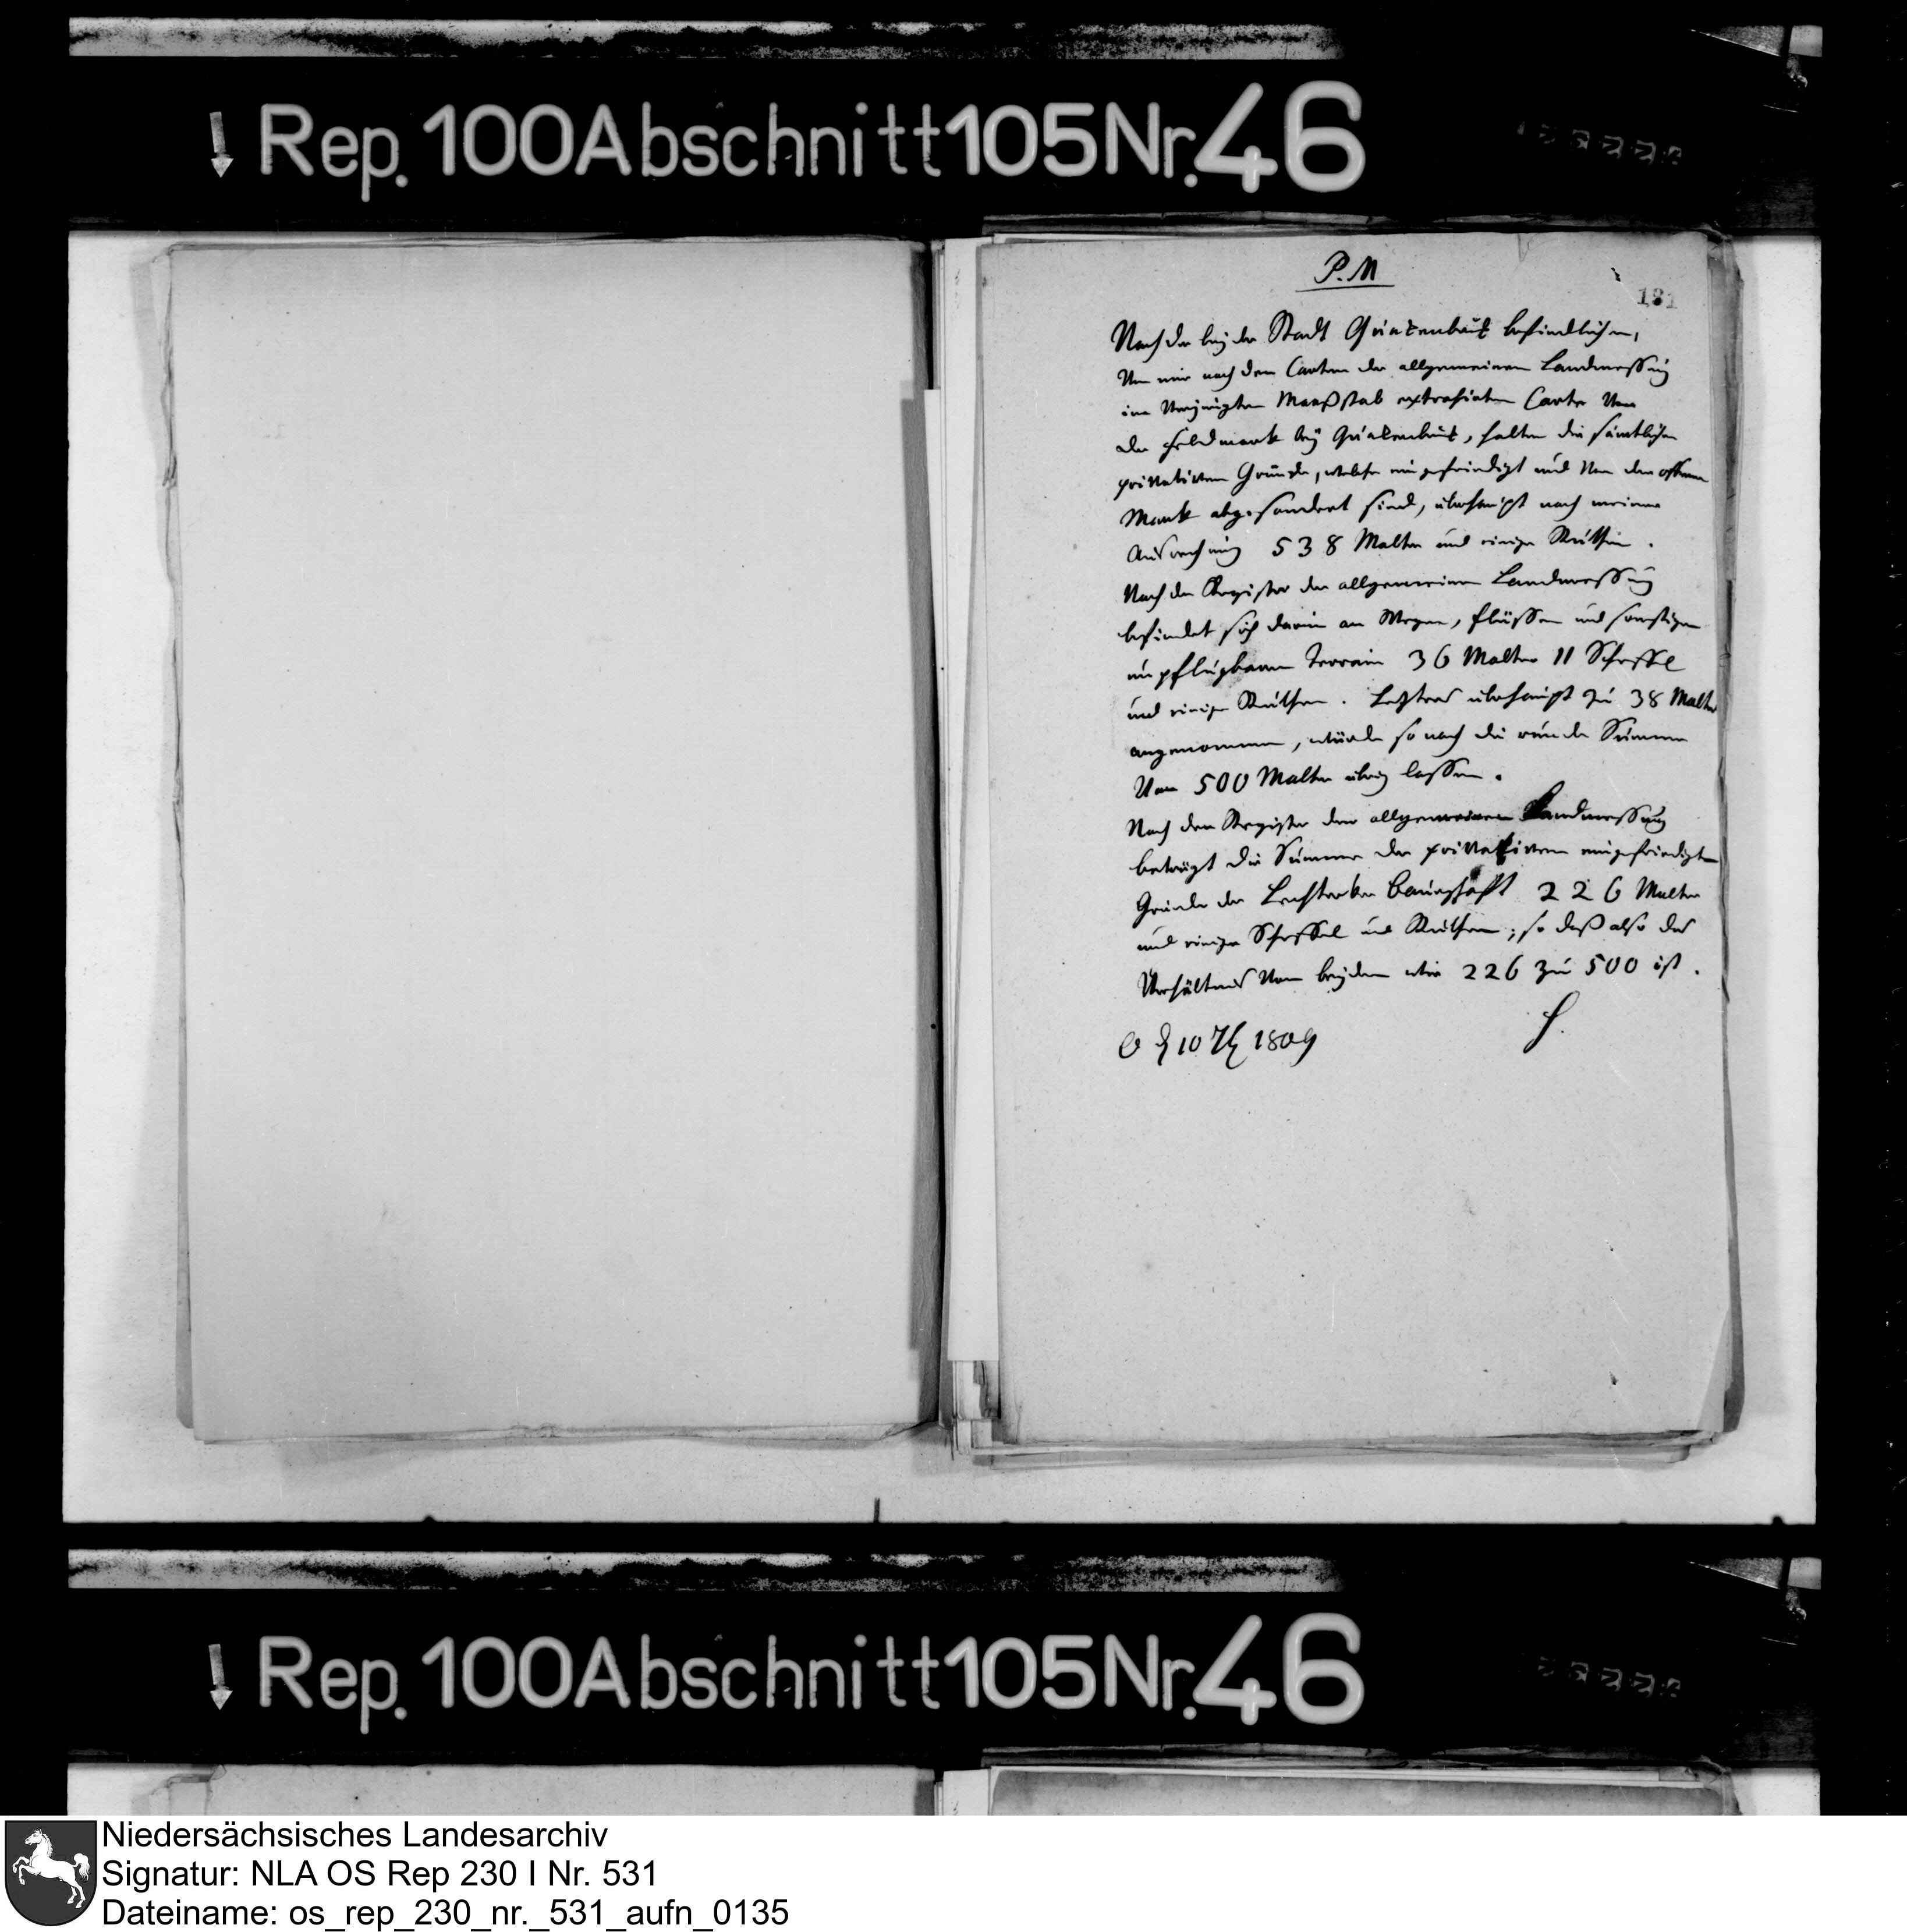 Rep. 100 Abschnitt 105 Nr. 46
P. M
181
Nach der bey der Stadt Quakenbrük befindlichen,
Von mir nach den Carten der allgemeinen Landmessung
im Verjüngten Maaßstab extrahirten Carte Von
der Feldmark bey Quakenbrük, halten die sämtlichen
privativen Gründe, welche eingefriedigt und Von der offenen
Mark abgesondert sind, überhaupt nach meiner
Ausrechnung 538 Malter und einige Ruthen.
Nach dem Register der allgemeinen Landmessung
befindet sich darin an Wegen, Flüssen und sonstigen
unpflugbaren Terrain 36 Malter 11 Scheffel
und einige Ruthen. Letzteres überhaupt zu 38 Malter
angenommen, würde so nach die runde Summe
Von 500 Malter übrig lassen.
Nach dem Register der allgemeinen Landmessung
beträgt die Summe der privativen eingefriedigten
Gründe der Bauerschaft 226 Malter
und einige Scheffel und Ruthen; so daß also das
Verhältnis Von beyden wie 226 zu 500 ist.
O d 10 1809
H.
Rep. 100 Abschnitt 105 Nr. 46
Niedersächsisches Landesarchiv
Signatur: NLA OS Rep 230 I Nr. 531
Dateiname: os_rep_230_nr._531_aufn_0135